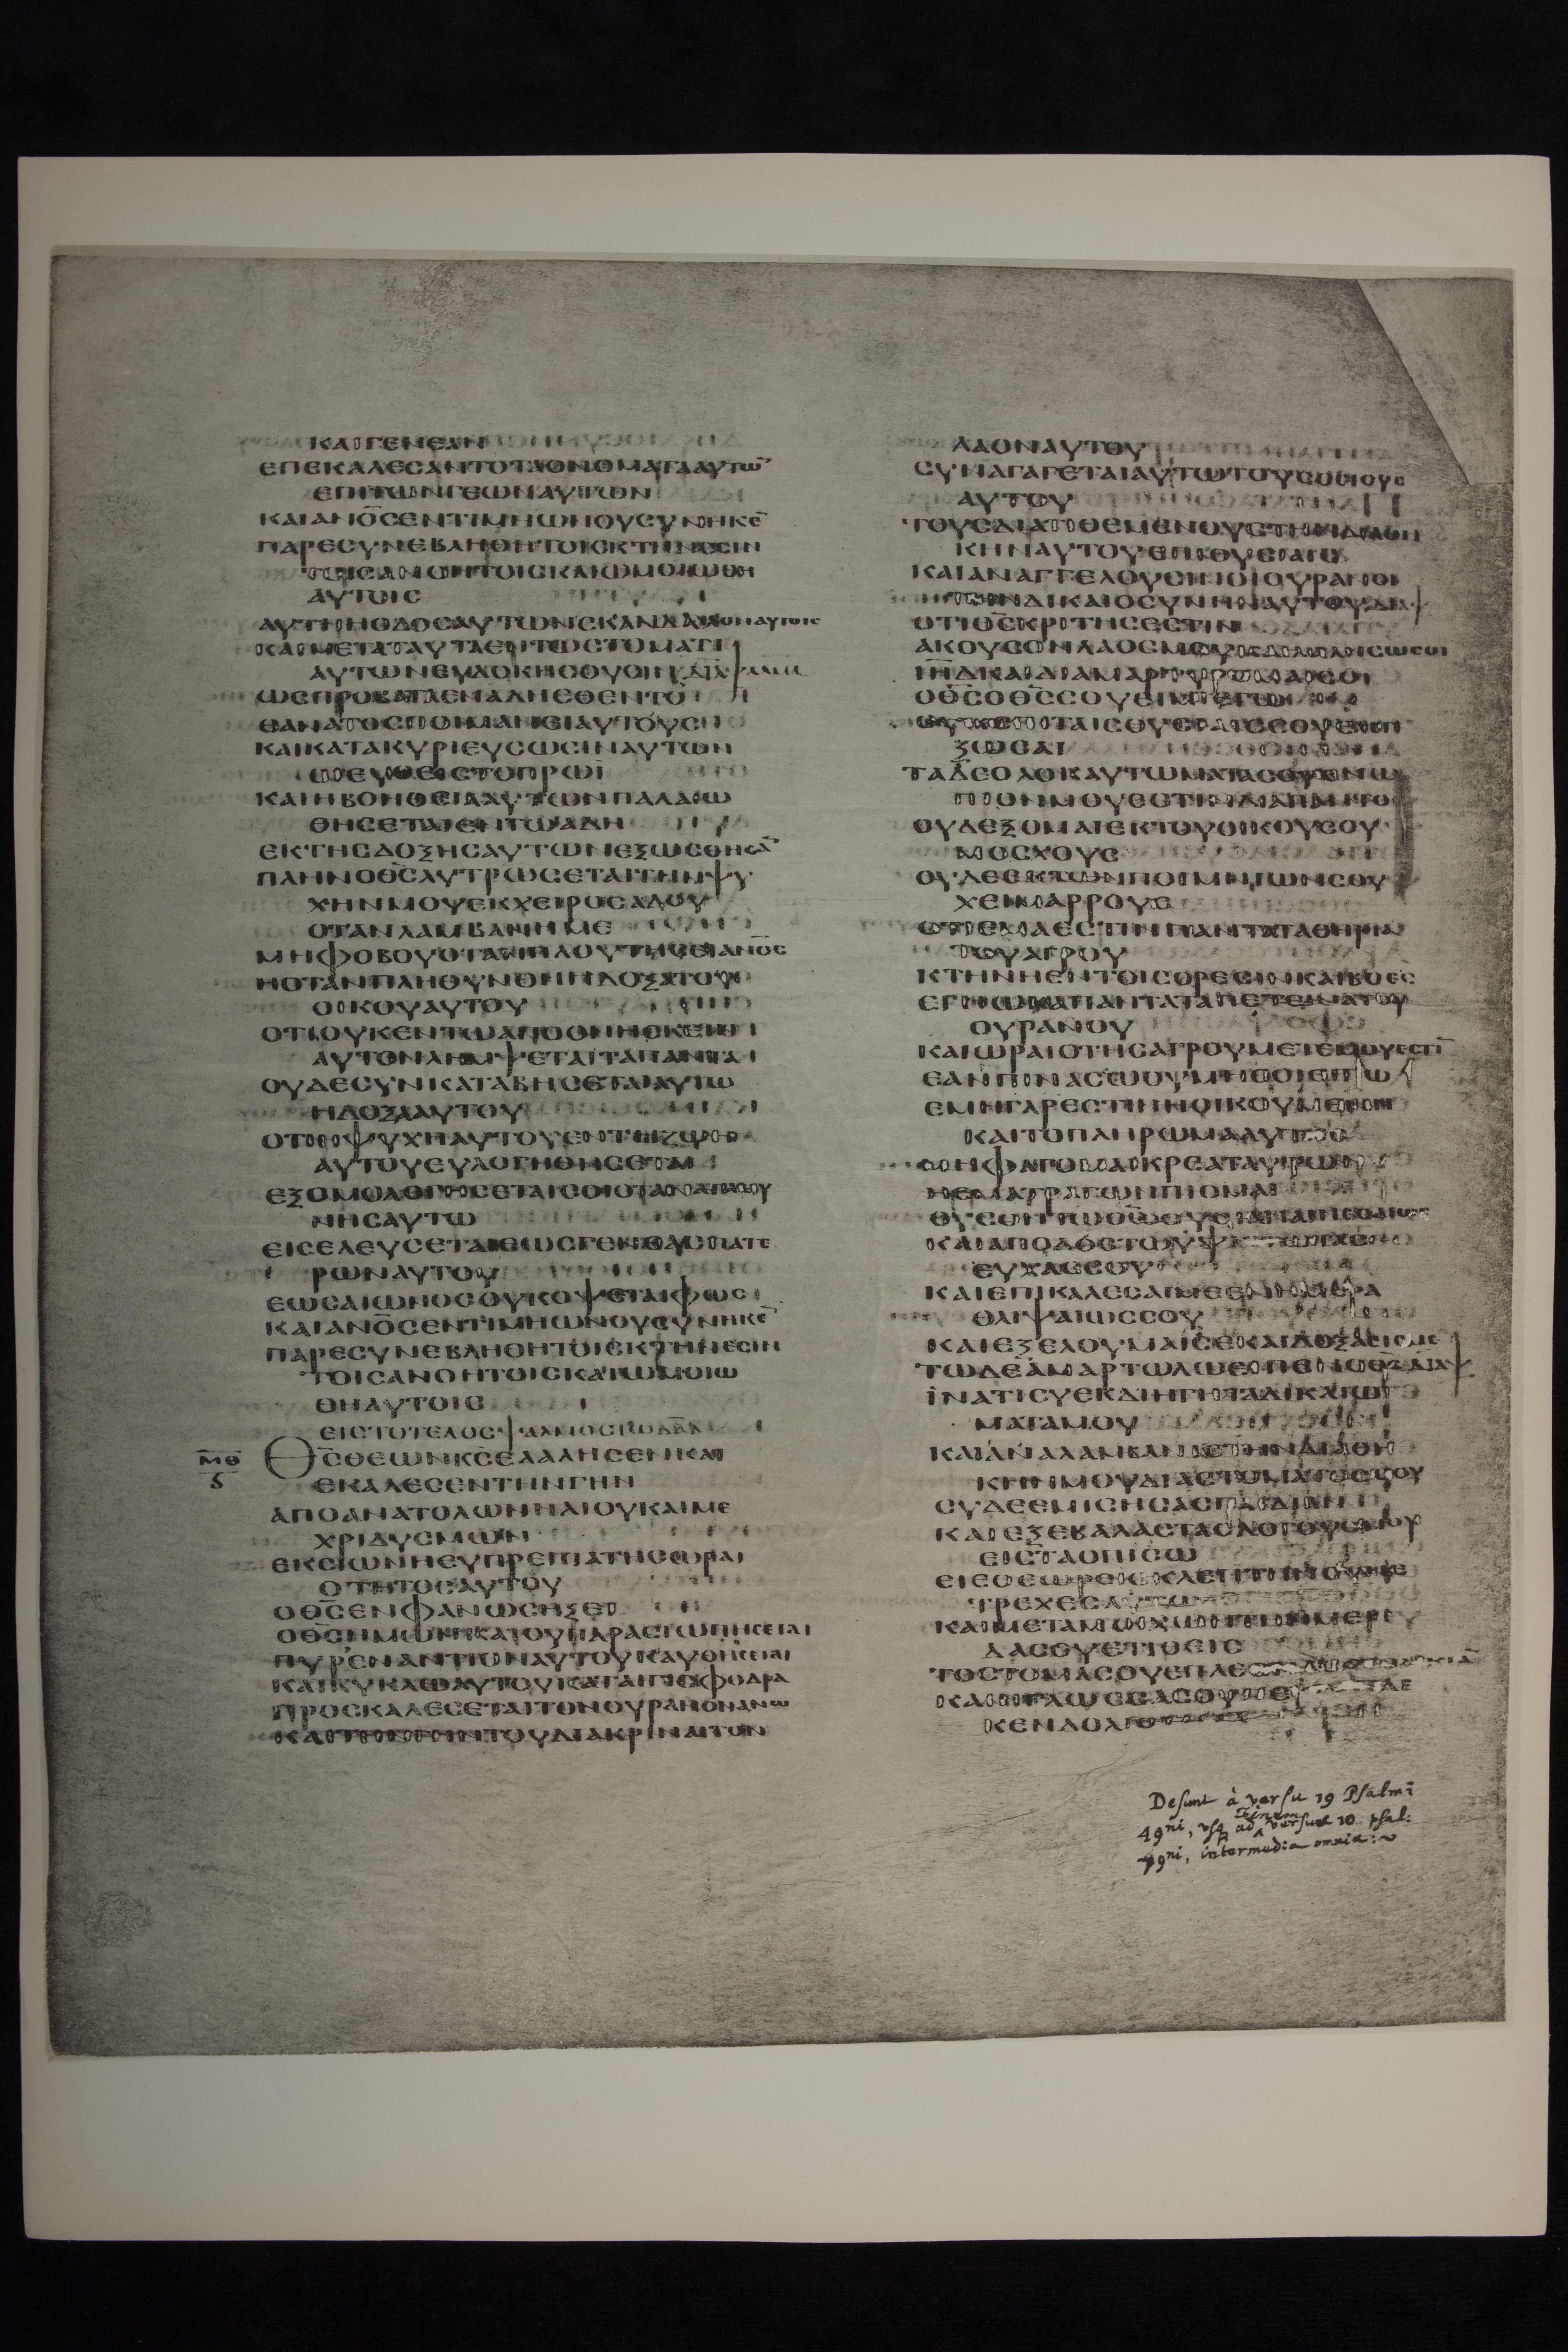 ΚΑΙΓΕΝΕΑΝ
ΕΠΕΚΑΛΕΣΑΝΤΟΤΑΟΝΟΜΑΤΑΑΥΤΩ̅
ΕΠΙΤΩΝΓΕΩΝΑΥΤΩΝ
ΚΑΙΑΝΟ̅ΣΕΝΤΙΜΗΩΝΟΥΣΥΝΗΚΕ̅
ΠΑΡΕΣΥΝΕΒΛΗΘΗΤΟΙΣΚΤΗΝΕΣΙΝ
ΤΟΙΣΑΝΟΗΤΟΙΣΚΑΙΩΜΟΙΩΘΗ
ΑΥΤΟΙΣ
ΑΥΤΗΗΟΔΟΣΑΥΤΩΝΣΚΑΝΔΑΛΟΝΑΥΤΟΙΣ
ΚΑΙΜΕΤΑΤΑΥΤΑΕΝΤΩΣΤΟΜΑΤΙ
ΑΥΤΩΝΕΥΔΟΚΗΣΟΥΣΙΝ
ΩΣΠΡΟΒΑΤΑΕΝΑΔΗΕΘΕΝΤΟ
ΘΑΝΑΤΟΣΠΟΙΜΑΝΕΙΑΥΤΟΥΣ
ΚΑΙΚΑΤΑΚΥΡΙΕΥΣΩΣΙΝΑΥΤΩΝ
ΟΙΕΥΘΕΙΣΤΟΠΡΩΙ
ΚΑΙΗΒΟΗΘΕΙΑΑΥΤΩΝΠΑΛΑΙΩ
ΘΗΣΕΤΑΙΕΝΤΩΑΔΗ
ΕΚΤΗΣΔΟΞΗΣΑΥΤΩΝΕΞΩΣΘΗΣΑ̅
ΠΛΗΝΟΘ̅ΣΛΥΤΡΩΣΕΤΑΙΤΗΝΨΥ
ΧΗΝΜΟΥΕΚΧΕΙΡΟΣΑΔΟΥ
ΟΤΑΝΛΑΜΒΑΝΗΜΕ
ΜΗΦΟΒΟΥΟΤΑΝΠΛΟΥΤΗΣΕΙΑΝΟ̅Σ
ΗΟΤΑΝΠΛΗΘΥΝΘΗΗΔΟΞΑΤΟΥ
ΟΙΚΟΥΑΥΤΟΥ
ΟΤΙΟΥΚΕΝΤΩΑΠΟΘΝΗΣΚΕΙΝ
ΑΥΤΟΝΛΗΜΨΕΤΑΙΤΑΠΑΝΤΑ
ΟΥΔΕΣΥΝΚΑΤΑΒΗΣΕΤΑΙΑΥΤΩ
ΗΔΟΞΑΑΥΤΟΥ
ΟΤΙΗΨΥΧΗΑΥΤΟΥΕΝΤΗΖΩΗ
ΑΥΤΟΥΕΥΛΟΓΗΘΗΣΕΤΑΙ
ΕΞΟΜΟΛΟΓΗΣΕΤΑΙΣΟΙΟΤΑΝΑΓΑΘΥ
ΝΗΣΑΥΤΩ
ΕΙΣΕΛΕΥΣΕΤΑΙΕΩΣΓΕΝΕΑΣΠΑΤΕ
ΡΩΝΑΥΤΟΥ
ΕΩΣΑΙΩΝΟΣΟΥΚΟΨΕΤΑΙΦΩΣ
ΚΑΙΑΝΟ̅ΣΕΝΤΙΜΗΩΝΟΥΣΥΝΗΚΕ̅
ΠΑΡΕΣΥΝΕΒΛΗΘΗΤΟΙΣΚΤΗΝΕΣΙΝ
ΤΟΙΣΑΝΟΗΤΟΙΣΚΑΙΩΜΟΙΩ
ΘΗΑΥΤΟΙΣ
ΕΙΣΤΟΤΕΛΟΣΨΑΛΜΟΣΤΩ
Μ̅Θ̅ Θ̅ΣΘΕΩΝΚ̅ΣΕΛΑΛΗΣΕΝΚΑΙ
ΕΚΑΛΕΣΕΝΤΗΝΓΗΝ
ΑΠΟΑΝΑΤΟΛΩΝΗΛΙΟΥΚΑΙΜΕ
ΧΡΙΔΥΣΜΩΝ
ΕΚΣΙΩΝΗΕΥΠΡΕΠΙΑΤΗΣΩΡΑΙ
ΟΤΗΤΟΣΑΥΤΟΥ
ΟΘ̅ΣΕΝΦΑΝΩΣΗΞΕΙ
ΟΘ̅ΣΗΜΩΝΚΑΙΟΥΠΑΡΑΣΙΩΠΗΣΕΤΑΙ
ΠΥΡΕΝΑΝΤΙΟΝΑΥΤΟΥΚΑΥΘΗΣΕΤΑΙ
ΚΑΙΚΥΚΛΩΑΥΤΟΥΚΑΤΑΙΓΙΣΣΦΟΔΡΑ
ΠΡΟΣΚΑΛΕΣΕΤΑΙΤΟΝΟΥΡΑΝΟΝΑΝΩ
ΚΑΙΤΗΝΓΗΝΤΟΥΔΙΑΚΡΙΝΑΙΤΟΝ
ΛΑΟΝΑΥΤΟΥ
ΣΥΝΑΓΑΓΕΤΑΙΑΥΤΩΤΟΥΣΟΣΙΟΥΣ
ΑΥΤΟΥ
ΤΟΥΣΔΙΑΤΙΘΕΜΕΝΟΥΣΤΗΝΔΙΑΘΗ
ΚΗΝΑΥΤΟΥΕΠΙΘΥΣΙΑΙΣ
ΚΑΙΑΝΑΓΓΕΛΟΥΣΙΝΟΙΟΥΡΑΝΟΙ
ΤΗΝΔΙΚΑΙΟΣΥΝΗΝΑΥΤΟΥ
ΟΤΙΘ̅ΣΚΡΙΤΗΣΕΣΤΙΝ
ΑΚΟΥΣΟΝΛΑΟΣΜΟΥΚΑΙΛΑΛΗΣΩΣΟΙ
ΙΗ̅ΛΚΑΙΔΙΑΜΑΡΤΥΡΟΜΑΙΣΟΙ
ΟΘ̅ΣΟΘ̅ΣΣΟΥΕΙΜΙΕΓΩ
ΟΥΚΕΠΙΤΑΙΣΘΥΣΙΑΙΣΣΟΥΕΛΕΓ
ΞΩΣΑΙ
ΤΑΔΕΟΛΟΚΑΥΤΩΜΑΤΑΣΟΥΕΝΩ
ΠΙΟΝΜΟΥΕΣΤΙΝΔΙΑΠΑΝΤΟ
ΟΥΔΕΞΟΜΑΙΕΚΤΟΥΟΙΚΟΥΣΟΥ
ΜΟΣΧΟΥΣ
ΟΥΔΕΕΚΤΩΝΠΟΙΜΝΙΩΝΣΟΥ
ΧΕΙΜΑΡΡΟΥΣ
ΟΤΙΕΜΑΕΣΤΙΝΠΑΝΤΑΤΑΘΗΡΙΑ
ΤΟΥΑΓΡΟΥ
ΚΤΗΝΗΕΝΤΟΙΣΟΡΕΣΙΝΚΑΙΒΟΕΣ
ΕΓΝΩΚΑΠΑΝΤΑΤΑΠΕΤΕΙΝΑΤΟΥ
ΟΥΡΑΝΟΥ
ΚΑΙΩΡΑΙΟΤΗΣΑΓΡΟΥΜΕΤΕΜΟΥΕΣΤΙ̅
ΕΑΝΠΙΝΑΣΩΟΥΜΗΣΟΙΕΙΠΩ
ΕΜΗΓΑΡΕΣΤΙΝΗΟΙΚΟΥΜΕΝΗ
ΚΑΙΤΟΠΛΗΡΩΜΑΑΥΤΗΣ
ΜΗΦΑΓΟΜΑΙΚΡΕΑΤΑΥΡΩΝ
ΗΕΜΑΤΡΑΓΩΝΠΙΟΜΑΙ
ΘΥΣΟΝΤΩΘ̅Ω
ΚΑΙΑΠΟΔΟΣΤΩΥΨΙΣΤΩΤΑΣ
ΕΥΧΑΣΣΟΥ
ΚΑΙΕΠΙΚΑΛΕΣΑΙΜΕΕΝΗΜΕΡΑ
ΘΛΙΨΑΙΩΣΣΟΥ
ΚΑΙΕΞΕΛΟΥΜΑΙΣΕΚΑΙΔΟΞΑΣΙΣΜΕ
ΤΩΔΕΑΜΑΡΤΩΛΩΕΙΠΕΝΟΘ̅Σ
ΙΝΑΤΙΣΥΕΚΔΙΗΓΗΤΑΔΙΚΑΙΩ
ΜΑΤΑΜΟΥ
ΚΑΙΑΝΑΛΑΜΒΑΝΙΣΤΗΝΔΙΑΘΗ
ΚΗΝΜΟΥΔΙΑΣΤΟΜΑΤΟΣΣΟΥ
ΣΥΔΕΕΜΙΣΗΣΑΣΠΑΙΔΙΑΝ
ΚΑΙΕΞΕΒΑΛΑΣΤΟΥΣΛΟΓΟΥΣΜΟΥ
ΕΙΣΤΑΟΠΙΣΩ
ΕΙΕΘΕΩΡΕΙΣΚΛΕΠΤΗΝ
ΤΡΕΧΕΣΑΥΤΩ
ΚΑΙΜΕΤΑΜΟΙΧΩΝΤΗΝΜΕΡΙ
ΔΑΣΟΥΕΤΙΘΕΙΣ
ΤΟΣΤΟΜΑΣΟΥΕΠΛΕ
ΚΑΙΗΓΛΩΣΣΑΣΟΥΠΕΡΙΕΠΛΕ
ΚΕΝΔΟΛΙΟ
Desunt à versu 19 Psalmi
49ni, usq ad finem versus 10 psal:
79ni, intermedia omnia:~